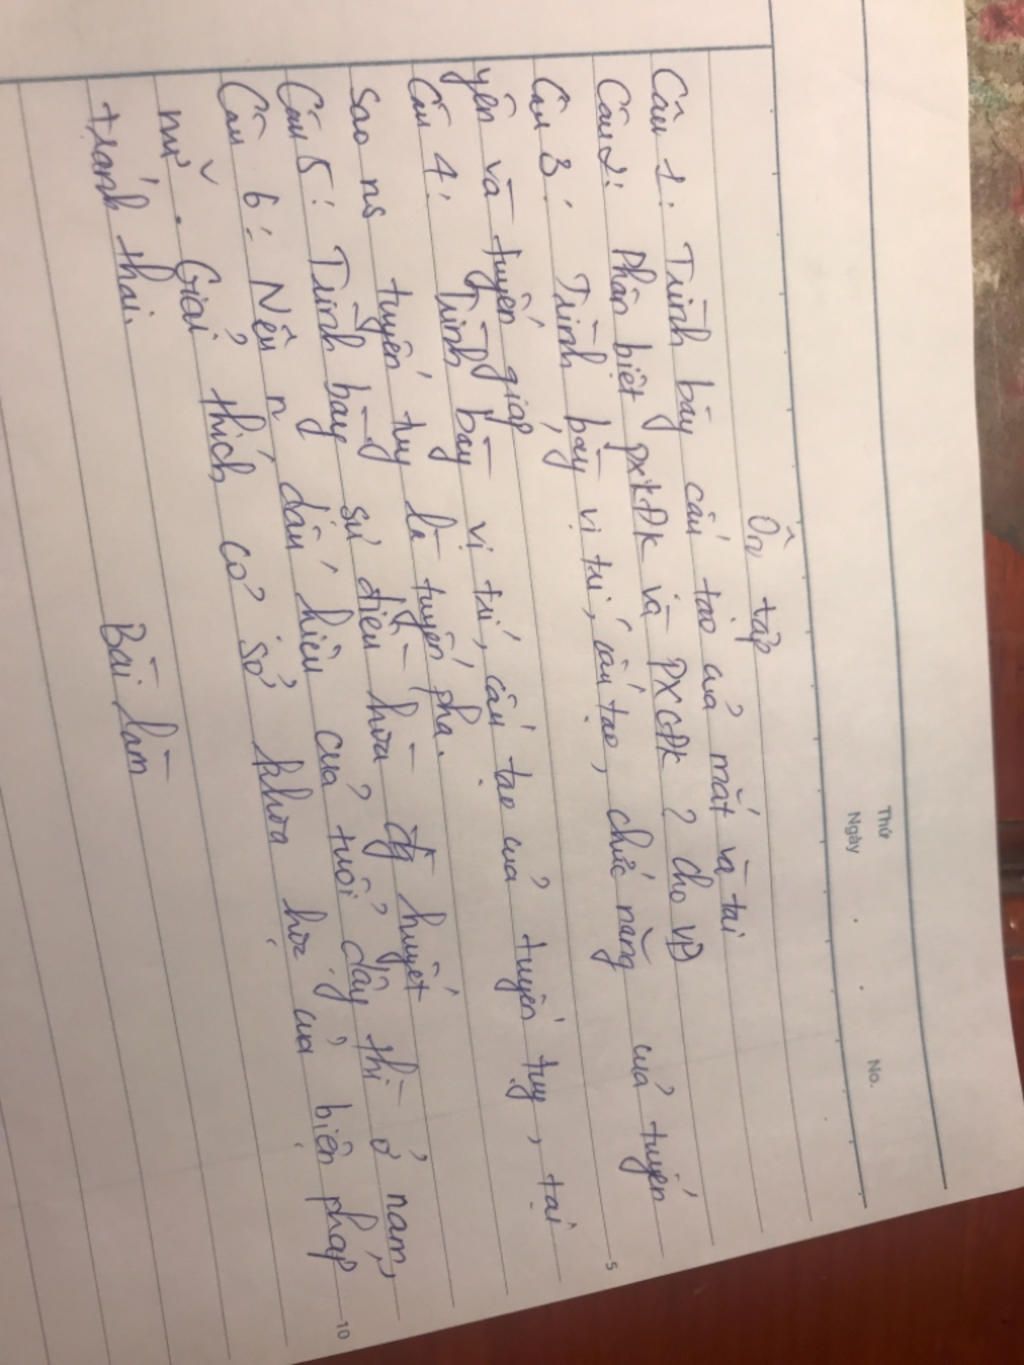 Thứ
Ngày . . No.
Ôn tập
Câu 1: Trình bày cấu tạo của mắt và tai
Câu 2: Phân biệt pxkĐk và PXCĐk ? Cho VD
Câu 3: Trình bày vị trí, cấu tạo, chức năng của tuyến
yên và tuyến giáp
Câu 4: Trình bày vị trí, cấu tạo của tuyến tụy, tại
sao ns tuyến tụy là tuyến pha.
Câu 5: Trình bày sự điều hòa đg huyết
Câu 6: Nêu n~ dấu hiệu của tuổi dậy thì ở nam,
nữ. Giải thích cơ sở khoa học của biện pháp
tránh thai.
Bài làm
5
10